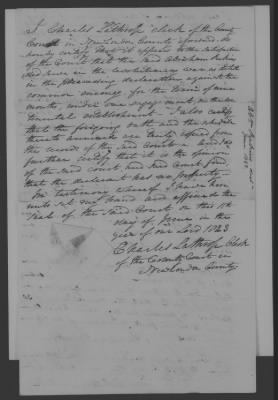 I Charles Lathrop clerk of the County
Court in New London County aforesaid do
hereby certify that it appears to the satisfaction
of the Court that the said Abraham
did serve in the revolutionary war as stated
in the preceeding declaration against the
common enemy for the term of nine
months under one engagement on the con
tinental establishment. I also certify
that the foregoing oath and the schedule
thereto annexed are truly copied from
the record of the said Court and I do
further certify that it is the opinion
of the said Court and said Court find
that the declarant has no property
In testimony whereof I have here
unto set my hand and affixed the
seal of the said Court on this
day of June in the
year of our Lord 1823
Charles Lathrop Clerk
of the County Court in
New London County